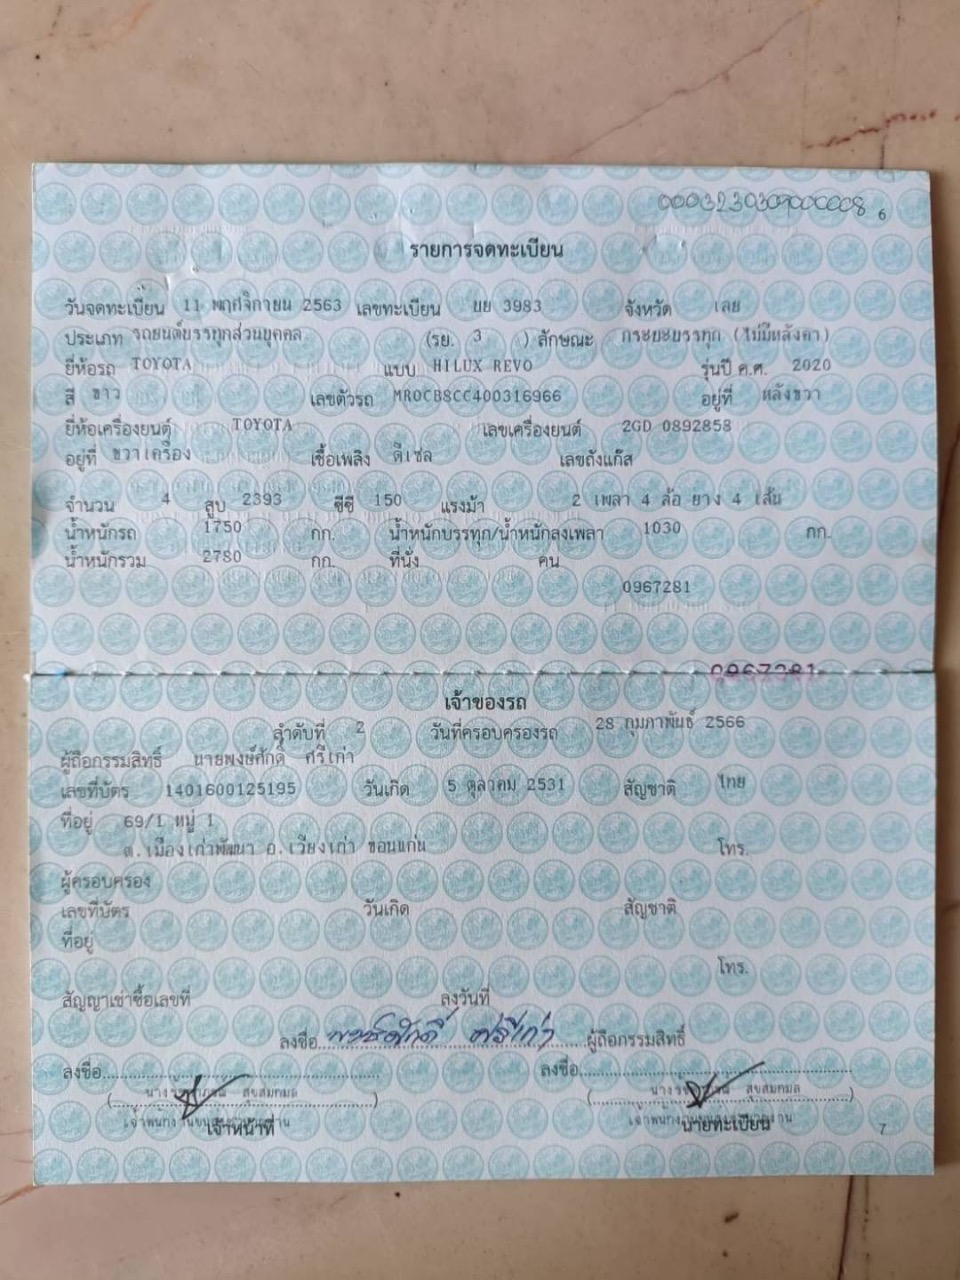 000323030900008 6
รายการจดทะเบียน
วันจดทะเบียน 11 พฤศจิกายน 2563 เลขทะเบียน ผย 3983 จังหวัด เลย
ประเภท รถยนต์บรรทุกส่วนบุคคล (รย. 3 ) ลักษณะ กระบะบรรทุก (ไม่มีหลังคา)
ยี่ห้อรถ TOYOTA แบบ HILUX REVO รุ่นปี ค.ศ. 2020
สี ขาว เลขตัวรถ MR0CB8CC400316966 อยู่ที่ หลังขวา
ยี่ห้อเครื่องยนต์ TOYOTA เลขเครื่องยนต์ 2GD 0892858
อยู่ที่ ขวาเครื่อง เชื้อเพลิง ดีเซล เลขถังแก๊ส
จำนวน 4 สูบ 2393 ซีซี 150 แรงม้า 2 เพลา 4 ล้อ ยาง 4 เส้น
น้ำหนักรถ 1750 กก. น้ำหนักบรรทุก/น้ำหนักลงเพลา 1030 กก.
น้ำหนักรวม 2780 กก. ที่นั่ง คน
0967281
0967281
เจ้าของรถ
ลำดับที่ 2 วันที่ครอบครองรถ 28 กุมภาพันธ์ 2566
ผู้ถือกรรมสิทธิ์ นายพงษ์ศักดิ์ ศรีเก่า
เลขที่บัตร 1401600125195 วันเกิด 5 ตุลาคม 2531 สัญชาติ ไทย
ที่อยู่ 69/1 หมู่ 1
ต.เมืองเก่าพัฒนา อ.เวียงเก่า ขอนแก่น โทร.
ผู้ครอบครอง
เลขที่บัตร วันเกิด สัญชาติ
ที่อยู่
โทร.
สัญญาเช่าซื้อเลขที่ ลงวันที่
ลงชื่อ พงษ์ศักดิ์ ศรีเก่า ผู้ถือกรรมสิทธิ์
ลงชื่อ ลงชื่อ
( นาง สุขสมกมล ) ( นาง สุขสมกมล )
เจ้าหน้าที่ นายทะเบียน
7